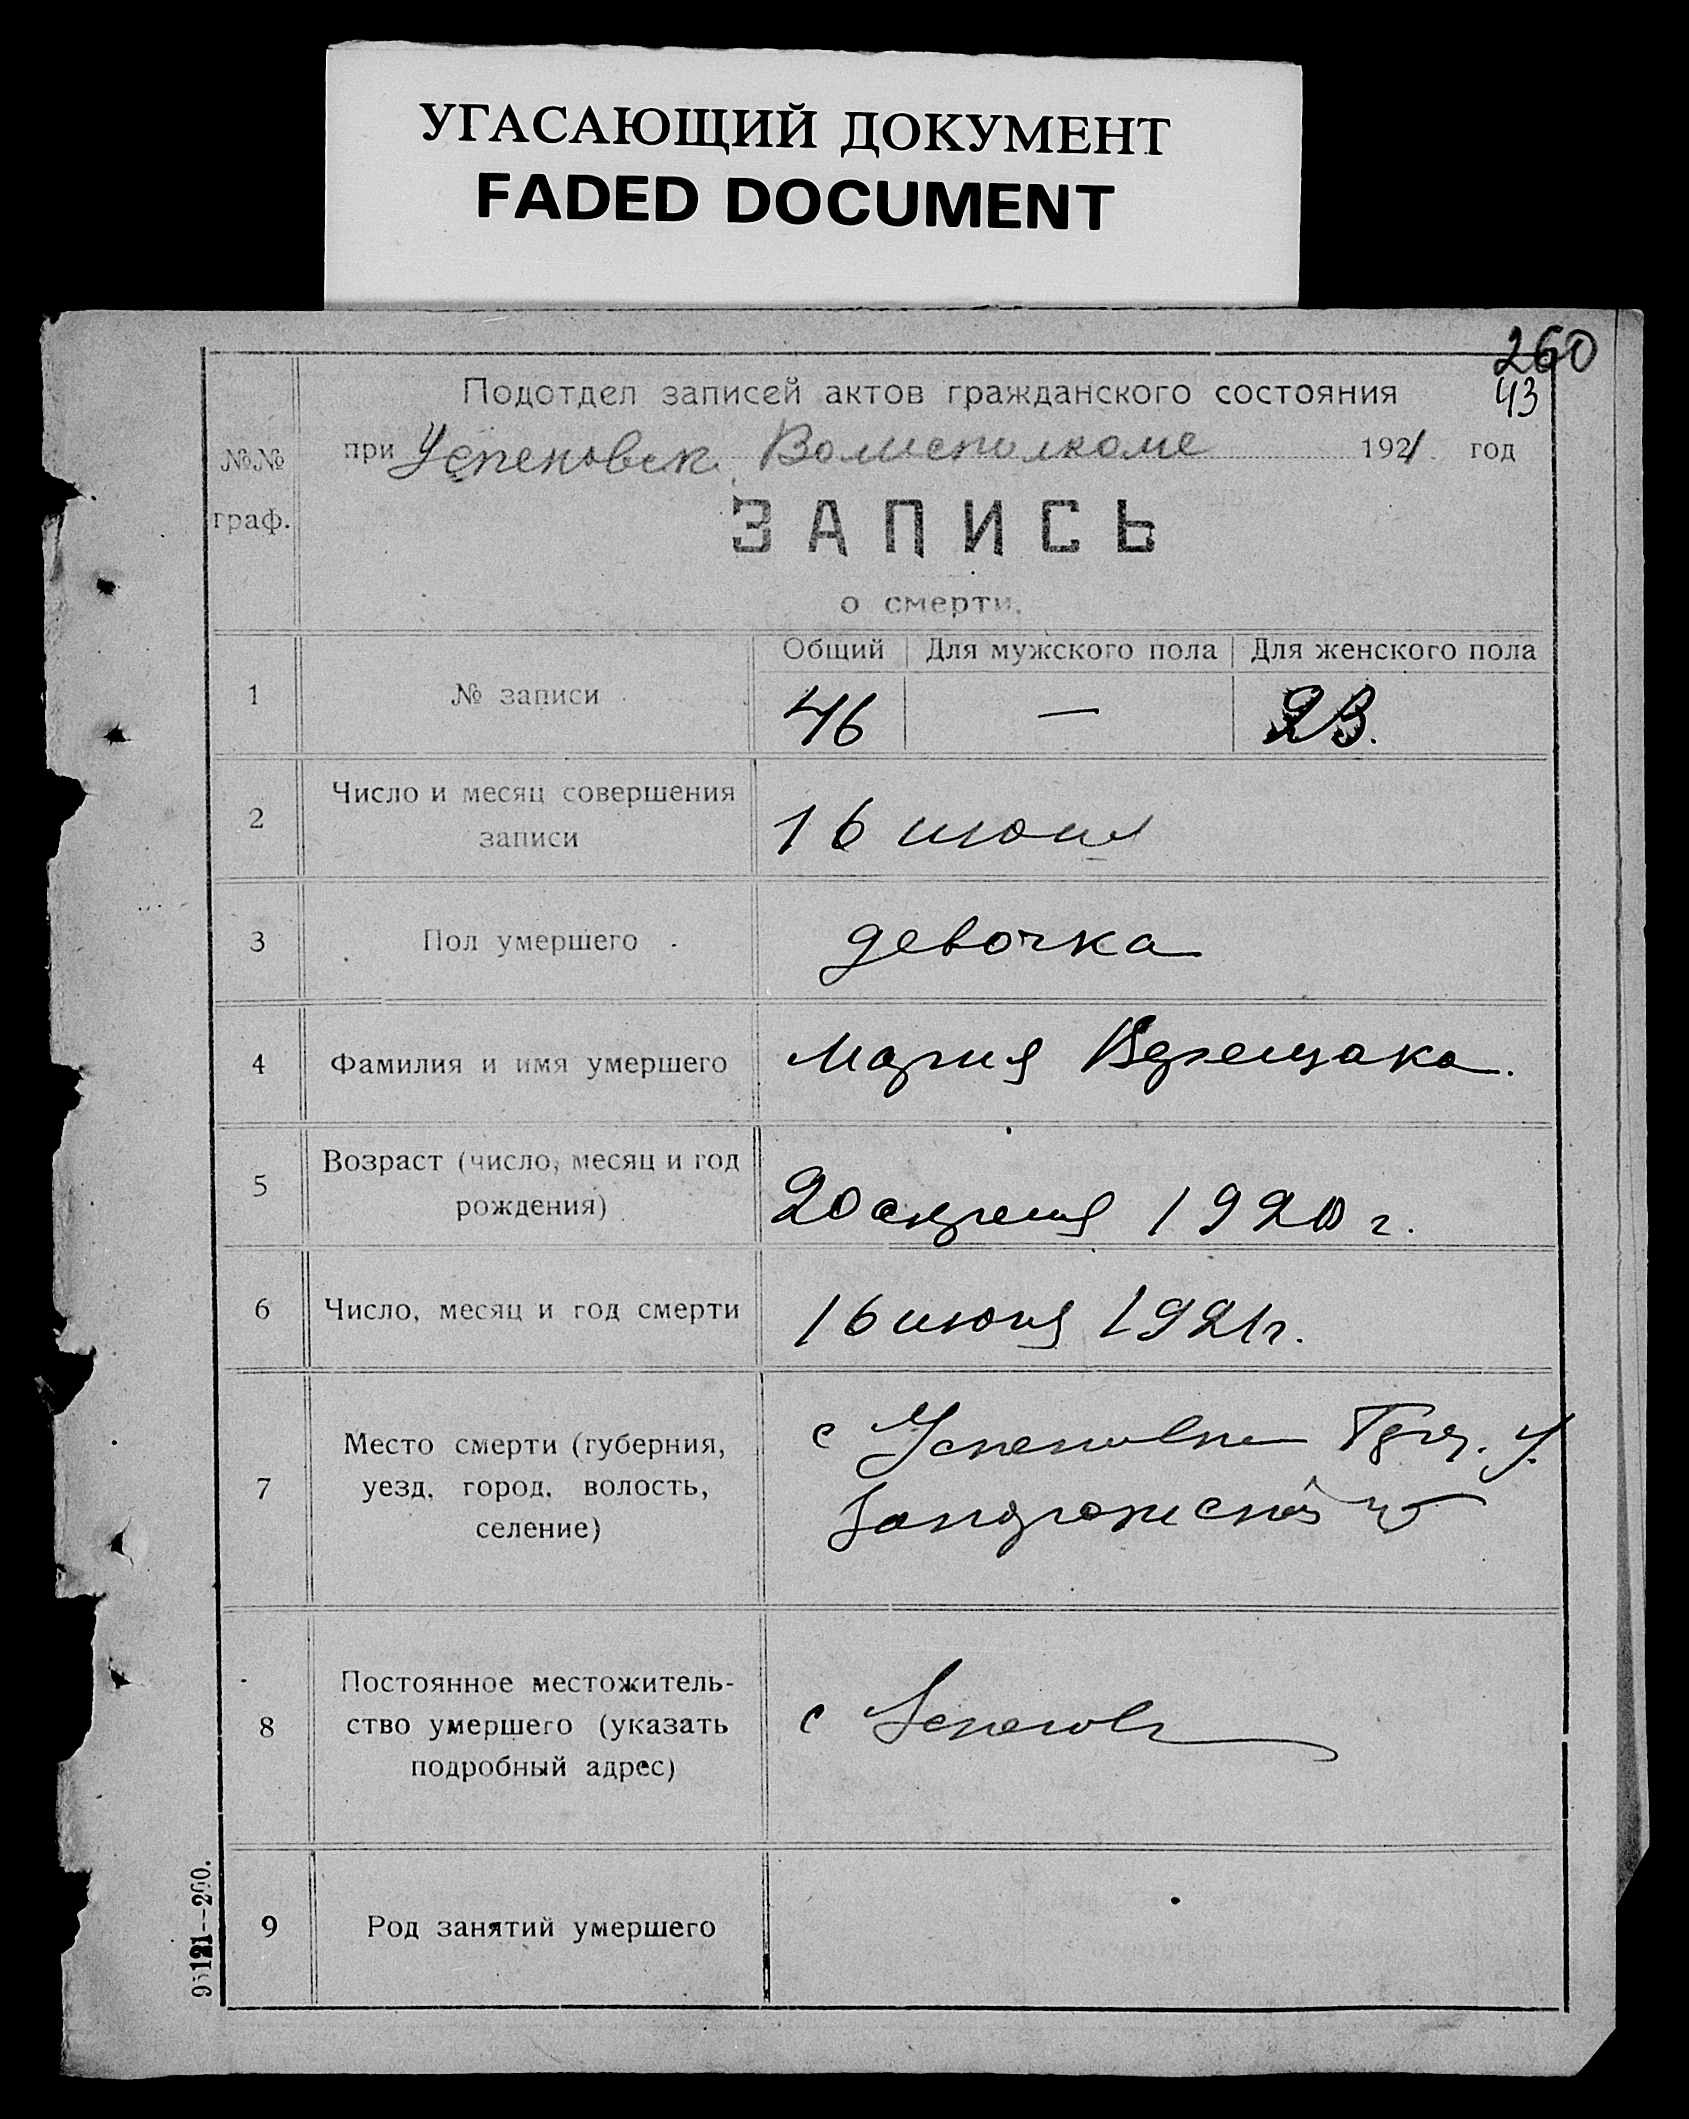 УГАСАЮЩИЙ ДОКУМЕНТ
FADED DOCUMENT
260
43
Подотдел записей актов гражданского состояния
при Успеновск. Волисполкоме 1921 год
№№
граф.
ЗАПИСЬ
о смерти.
Общий Для мужского пола Для женского пола
1 № записи 46 — 23.
2 Число и месяц совершения
записи
16 июня
3 Пол умершего девочка
4 Фамилия и имя умершего Мария Верещака.
5 Возраст (число, месяц и год
рождения)
20 апреля 1920 г.
6 Число, месяц и год смерти 16 июня 1921г.
7 Место смерти (губерния,
уезд, город, волость,
селение)
с Успеновка у.
Запорожской
8 Постоянное местожитель-
ство умершего (указать
подробный адрес)
с Успенов
9 Род занятий умершего
95121--200.